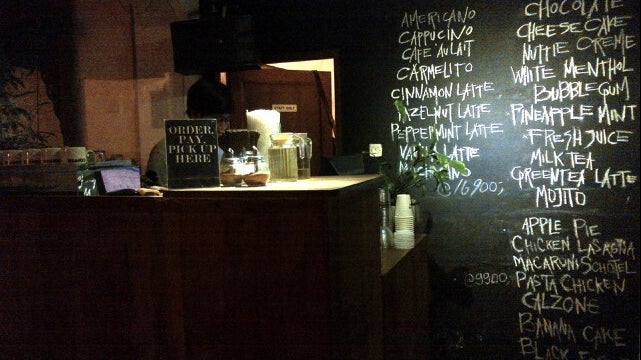 ORDER,
PAY,
PICK UP
HERE
STAFF ONLY
AMERICANO
CAPPUCINO
CAFE AU LAIT
CARMELITO
CINNAMON LATTE
HAZELNUT LATTE
PEPPERMINT LATTE
@16900;
CHOCOLATE
CHEESE CAKE
NUTTIE CREME
WHITE MENTHOL
BUBBLEGUM
PINEAPPLE MINT
FRESH JUICE
MILK TEA
GREENTEA LATTE
MOJITO
@9900;
APPLE PIE
CHICKEN LASAGNA
MACARONI SCHOTEL
PASTA CHICKEN
CALZONE
BANANA CAKE